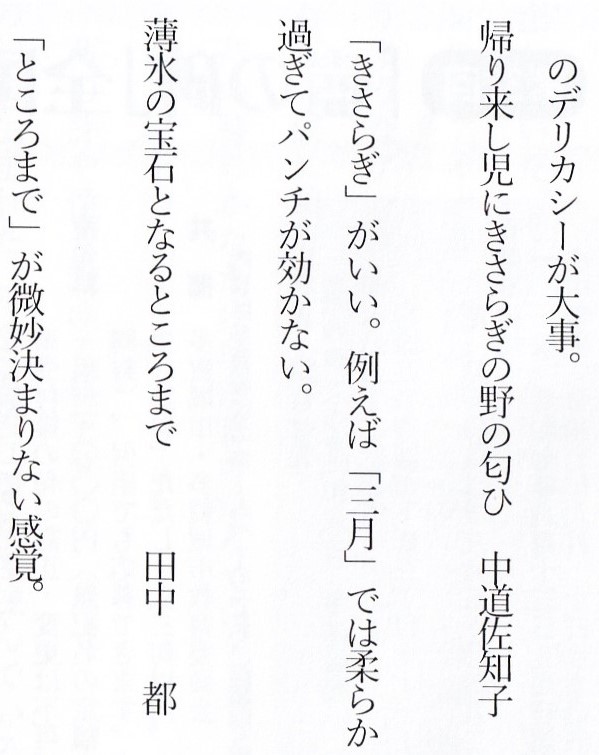 のデリカシーが大事。
帰り来し児にきさらぎの野の匂ひ　中道佐知子
「きさらぎ」がいい。例えば「三月」では柔らか
過ぎてパンチが効かない。
薄氷の宝石となるところまで　田中　都
「ところまで」が微妙決まりない感覚。